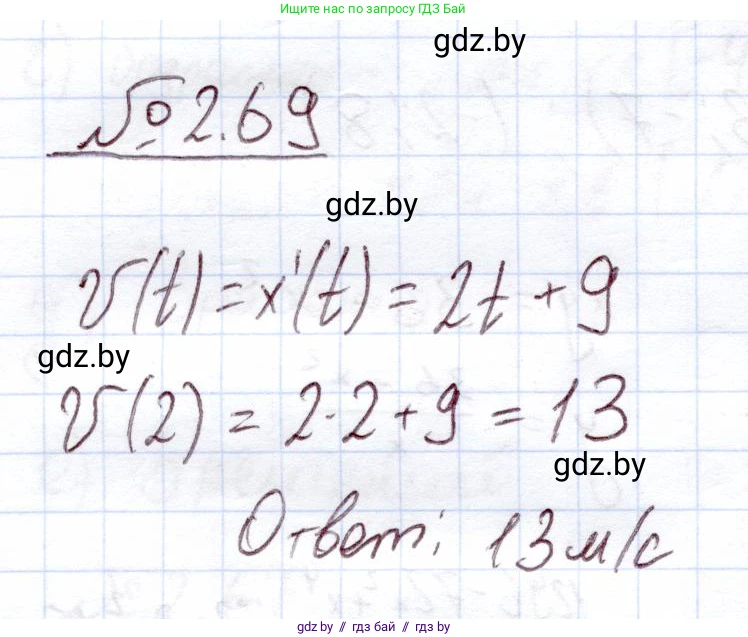 Ищите нас по запросу ГДЗ Бай
gdz.by
№ 2.69
gdz.by
v(t) = x'(t) = 2t + 9
gdz.by
v(2) = 2·2 + 9 = 13
gdz.by
Ответ: 13 м/с
gdz.by // гдз бай // гдз by